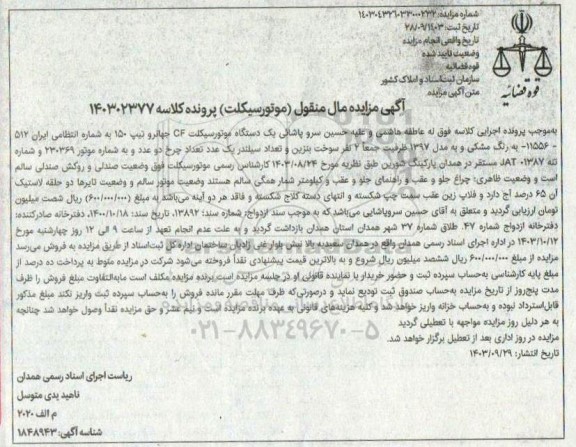 شماره مزایده: ۱۴۰۳۰۴۳۲۶۰۳۳۰۰۰۲۳۲
تاریخ ثبت: ۱۴۰۳/۰۹/۲۸
تاریخ واقعی انجام مزایده
وضعیت تایید شده
قوه قضائیه
سازمان ثبت اسناد و املاک کشور
متن آگهی مزایده
قوه قضائیه
آگهی مزایده مال منقول (موتورسیکلت) پرونده کلاسه ۱۴۰۳۰۲۳۷۷
به‌موجب پرونده اجرایی کلاسه فوق له عاطفه هاشمی و علیه حسین سرو پاشائی یک دستگاه موتورسیکلت CF جهانرو تیپ ۱۵۰ به شماره انتظامی ایران ۵۱۲
-۱۱۵۵۶ - به رنگ مشکی و به مدل ۱۳۹۷ ظرفیت جمعاً ۲ نفر سوخت بنزین و تعداد سیلندر یک عدد تعداد چرخ دو عدد و به شماره موتور ۲۳۰۳۶۹ و شماره
تنه JAT ۰۱۳۸۷ مستقر در همدان پارکینگ شورین طبق نظریه مورخ ۱۴۰۳/۰۸/۲۴ کارشناس رسمی موتورسیکلت فوق وضعیت صندلی و روکش صندلی سالم
است و وضعیت ظاهری: چراغ جلو و عقب و راهنمای جلو و عقب و کیلومتر شمار همگی سالم هستند وضعیت موتور سالم و وضعیت تایرها دو حلقه لاستیک
آن ۶۵ درصد آج دارد و قلاپ زین عقب سمت چپ شکسته و انتهای دسته کلاچ شکسته و فاقد هر دو آینه می‌باشد به مبلغ (۶۰۰/۰۰۰/۰۰۰) ریال شصت میلیون
تومان ارزیابی گردید و متعلق به آقای حسین سروپاشایی می‌باشد که به موجب سند ازدواج، شماره سند: ۱۳۸۹۲، تاریخ سند: ۱۴۰۰/۱۰/۱۸، دفترخانه صادرکننده:
دفترخانه ازدواج شماره ۴۷، طلاق شماره ۳۷ شهر همدان استان همدان بازداشت گردید و به علت عدم انجام تعهد از ساعت ۹ الی ۱۲ روز چهارشنبه مورخ
۱۴۰۳/۱۰/۱۲ در اداره اجرای اسناد رسمی همدان واقع در همدان سعیدیه بالا نبش بلوار غنی زادیان ساختمان اداره کل ثبت‌اسناد از طریق مزایده به فروش می‌رسد
مزایده از مبلغ ۶۰۰/۰۰۰/۰۰۰ ریال ششصد میلیون ریال شروع و به بالاترین قیمت پیشنهادی نقداً فروخته می‌شود شرکت در مزایده منوط به پرداخت ده درصد از
مبلغ پایه کارشناسی به‌حساب سپرده ثبت و حضور خریدار یا نماینده قانونی او در جلسه مزایده است برنده مزایده مکلف است مابه‌التفاوت مبلغ فروش را ظرف
مدت پنج‌روز از تاریخ مزایده به‌حساب صندوق ثبت تودیع نماید و درصورتی‌که ظرف مهلت مقرر مانده فروش را به‌حساب سپرده ثبت واریز نکند مبلغ مذکور
قابل‌استرداد نبوده و به‌حساب خزانه واریز خواهد شد و کلیه هزینه‌های قانونی به عهده برنده مزایده است و نیم عشر و حق مزایده نقداً وصول خواهد شد چنانچه
به هر دلیل روز مزایده مواجهه با تعطیلی گردید
مزایده در روز اداری بعد از تعطیل برگزار خواهد شد.
تاریخ انتشار: ۱۴۰۳/۰۹/۲۹
۰۲۱-۸۸۳۴۹۶۷۰-۵
ریاست اجرای اسناد رسمی همدان
ناهید یدی متوسل
م الف ۲۰۲۰
شناسه آگهی: ۱۸۴۸۹۴۳